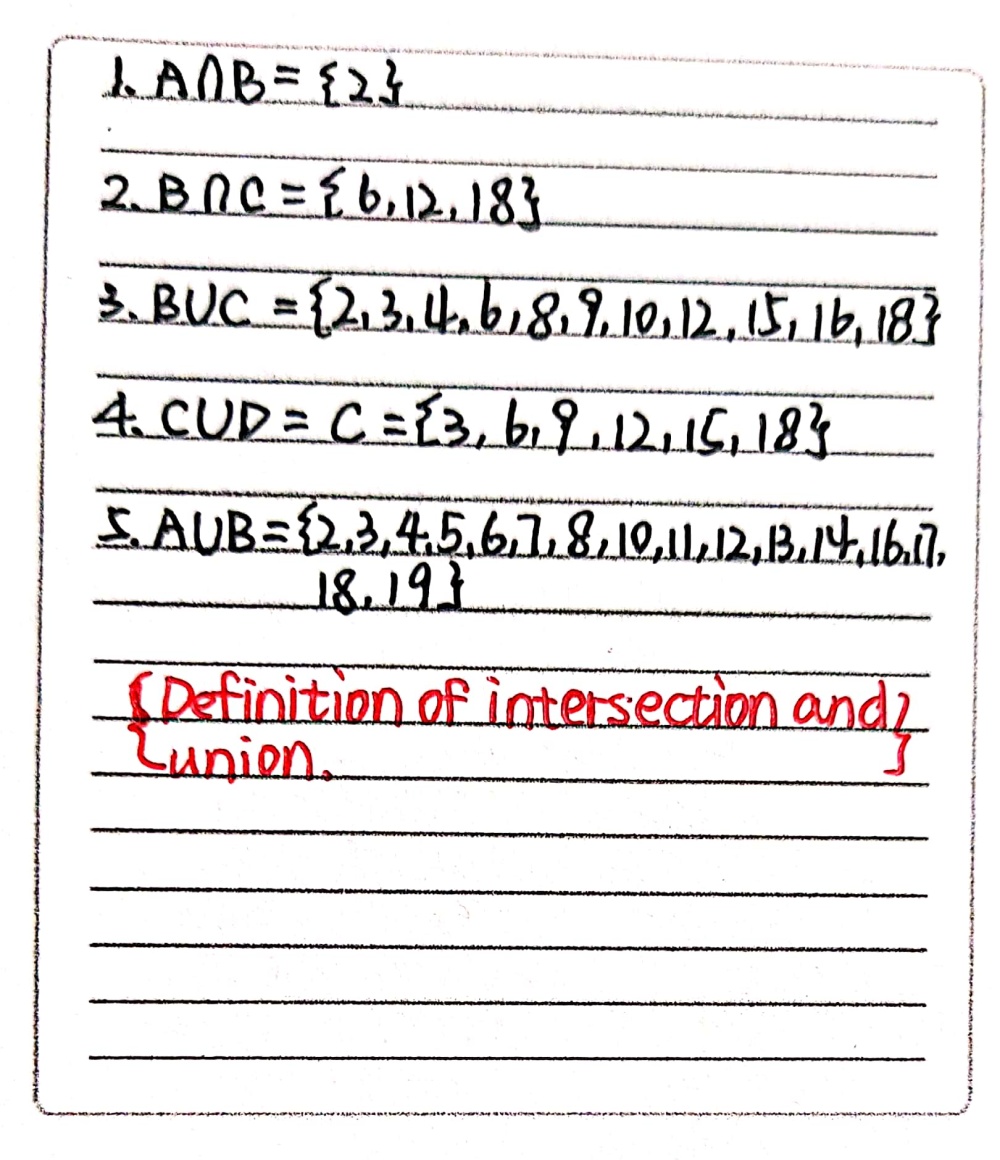 1. A∩B = {2}
2. B∩C = {6, 12, 18}
3. B∪C = {2, 3, 4, 6, 8, 9, 10, 12, 15, 16, 18}
4. C∪D = C = {3, 6, 9, 12, 15, 18}
5. A∪B = {2, 3, 4, 5, 6, 7, 8, 10, 11, 12, 13, 14, 16, 17,
18, 19}
{Definition of intersection and
union.}